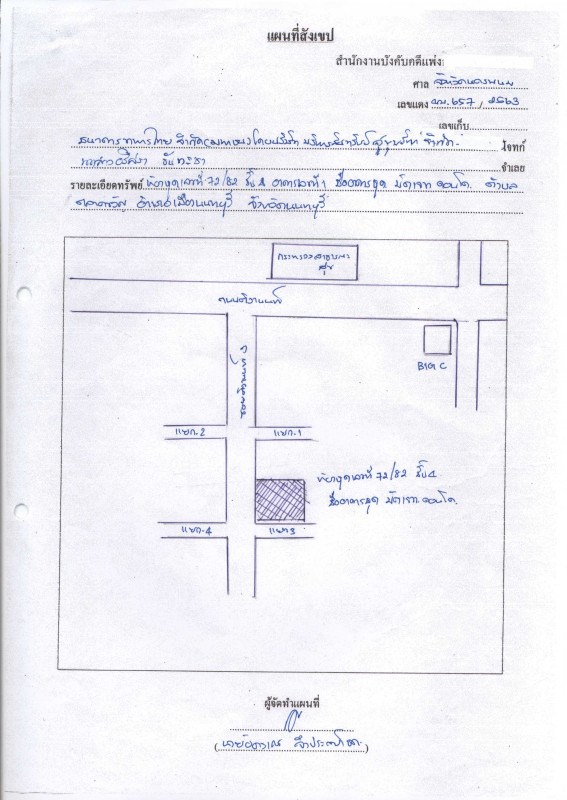 แผนที่สังเขป
สำนักงานบังคับคดีแพ่ง
ศาล จังหวัดนครพนม
เลขแดง ผบ.657 / 2563
เลขเก็บ
ธนาคารทหารไทย จำกัด(มหาชน) โดยบริษัท บริหารสินทรัพย์ จำกัด โจทก์
จำเลย
รายละเอียดทรัพย์ ห้องชุดเลขที่ 72/82 ชั้น 4 อาคารเลขที่ 1 ชื่ออาคารชุด คอนโด ตำบล
ตลาดขวัญ อำเภอเมืองนนทบุรี จังหวัดนนทบุรี
กระทรวงสาธารณะ
สุข
ถนนติวานนท์
BIG C
แยก-2
แยก-1
ห้องชุดเลขที่ 72/82 ชั้น 4
ชื่ออาคารชุด คอนโด
แยก-4
แยก3
ผู้จัดทำแผนที่